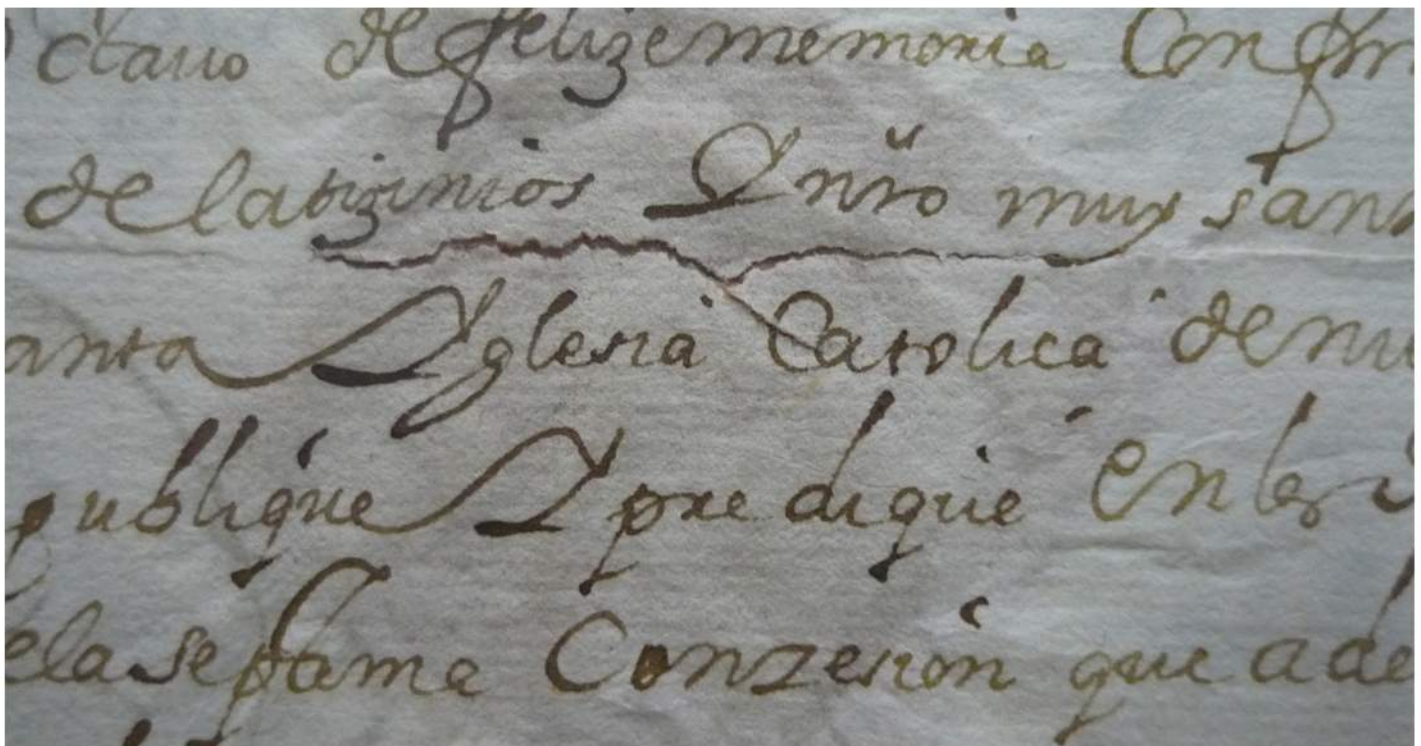 ctauo de felize memoria Confir
de latizinios Y nro muy sant
anta Yglesia Catolica de nu
publique Y predique en los
ela septima Conzesion que a de